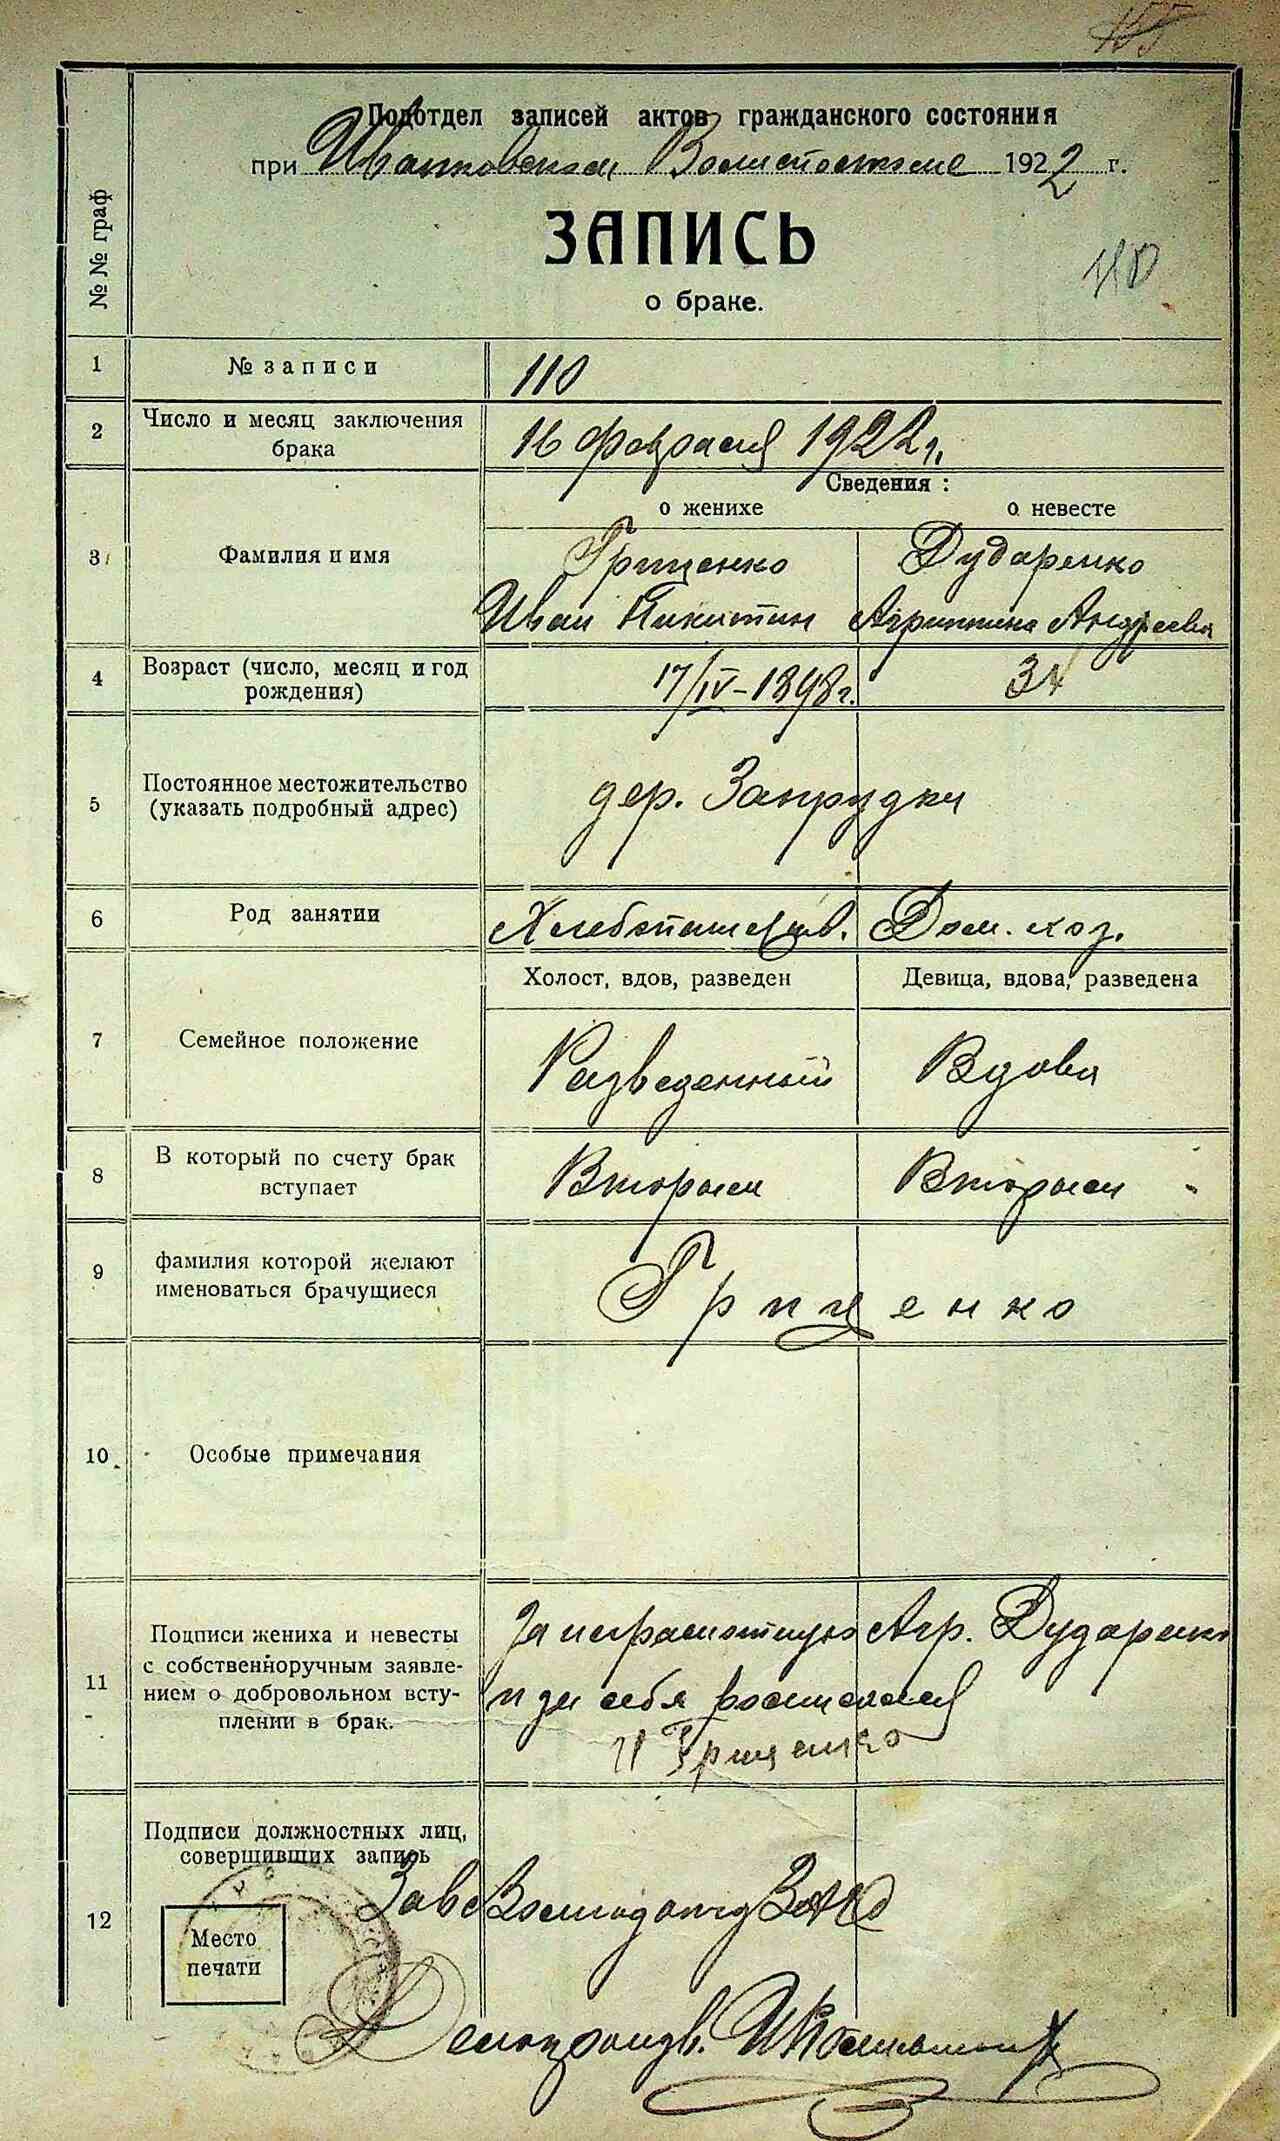 155
Подотдел записей актов гражданского состояния
при Иванковском Волисполкоме 1922 г.
ЗАПИСЬ
о браке.
110
№№ граф
1 № записи 110
2 Число и месяц заключения
брака
16 февраля 1922 г.
Сведения:
о женихе о невесте
3 Фамилия и имя
Гриценко Дударенко
Иван Никитин Агриппина Андреева
4 Возраст (число, месяц и год
рождения)
17/IV-1898 г. 34
5 Постоянное местожительство
(указать подробный адрес)
дер. Запрудки
6 Род занятии Хлебопашец Дом. хоз.
Холост, вдов, разведен Девица, вдова, разведена
7 Семейное положение Разведенный Вдова
8 В который по счету брак
вступает
Вторым Вторым
9 фамилия которой желают
именоваться брачущиеся
Гриценко
10 Особые примечания
11 Подписи жениха и невесты
с собственноручным заявле-
нием о добровольном всту-
плении в брак.
За неграмотную Агр. Дударенко
и за себя росписался
И Гриценко
12 Подписи должностных лиц,
совершивших запись
Место
печати
Зав.
Делопроизв.